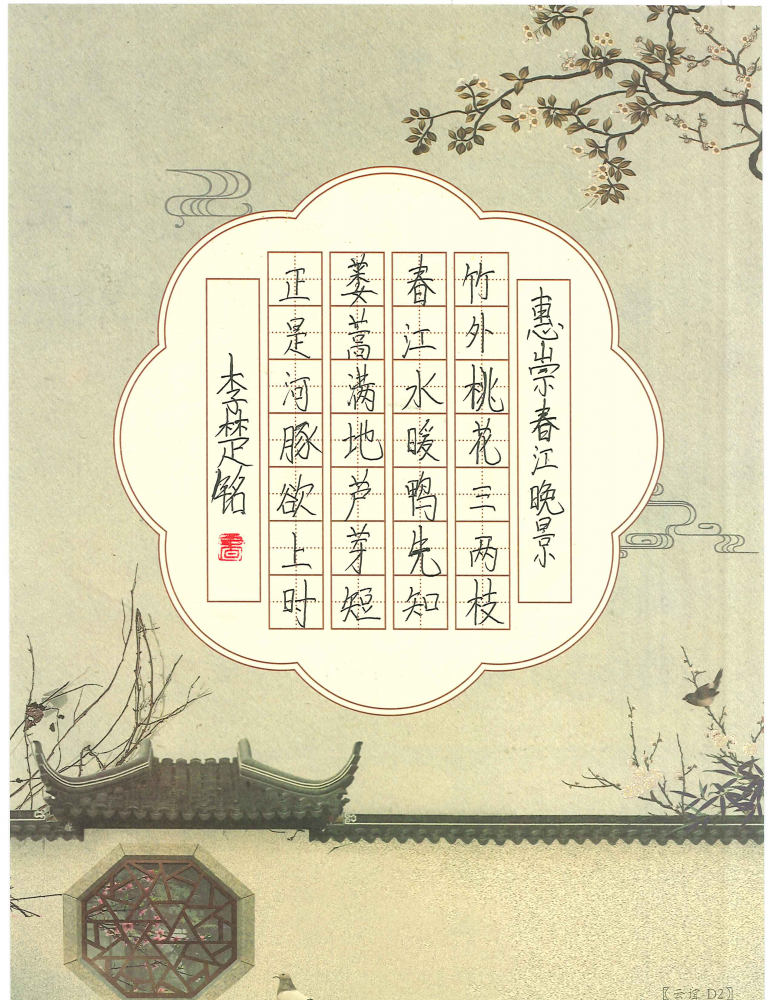 惠崇春江晚景
竹外桃花三两枝
春江水暖鸭先知
蒌蒿满地芦芽短
正是河豚欲上时
李楚铭
〖云谊-D2〗